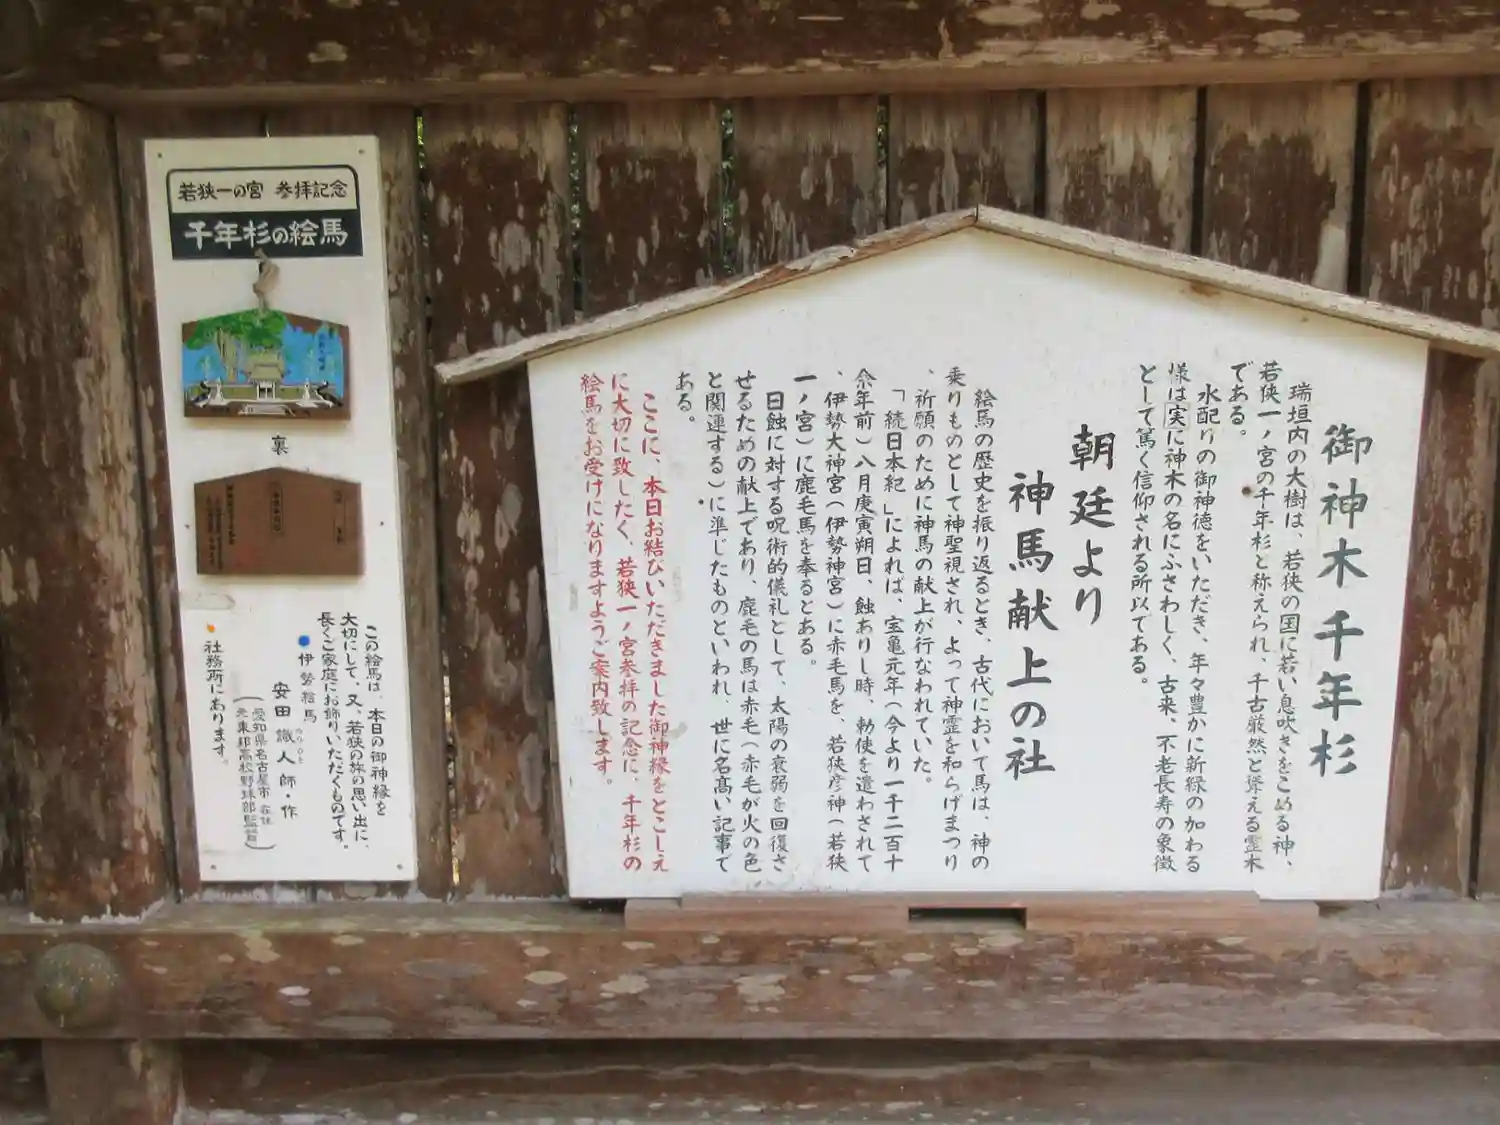 御神木千年杉
瑞垣内の大樹は、若狭の国に若い息吹きをこめる神、
若狭一ノ宮の千年杉と称えられ、千古厳然と聳える霊木
である。
水配りの御神徳をいただき、年々豊かに新緑の加わる
様は実に神木の名にふさわしく、古来、不老長寿の象徴
として篤く信仰される所以である。
朝廷より
神馬献上の社
絵馬の歴史を振り返るとき、古代において馬は、神の
乗りものとして神聖視され、よって神霊を和らげまつり
、祈願のために神馬の献上が行なわれていた。
「続日本紀」によれば、宝亀元年(今より一千二百十
余年前)八月庚寅朔日、蝕ありし時、勅使を遣わされて
、伊勢大神宮(伊勢神宮)に赤毛馬を、若狭彦神(若狭
一ノ宮)に鹿毛馬を奉るとある。
日蝕に対する呪術的儀礼として、太陽の衰弱を回復さ
せるための献上であり、鹿毛の馬は赤毛(赤毛が火の色
と関連する)に準じたものといわれ、世に名高い記事で
ある。
ここに、本日お結びいただきました御神縁をとこしえ
に大切に致したく、若狭一ノ宮参拝の記念に、千年杉の
絵馬をお受けになりますようご案内致します。
若狭一の宮 参拝記念
千年杉の絵馬
裏
この絵馬は、本日の御神縁を
大切にして、又、若狭の旅の思い出に、
長くご家庭にお飾りいただくものです。
伊勢絵馬
安田識人師・作
(愛知県名古屋市在住
元東邦高校野球部監督)
社務所にあります。